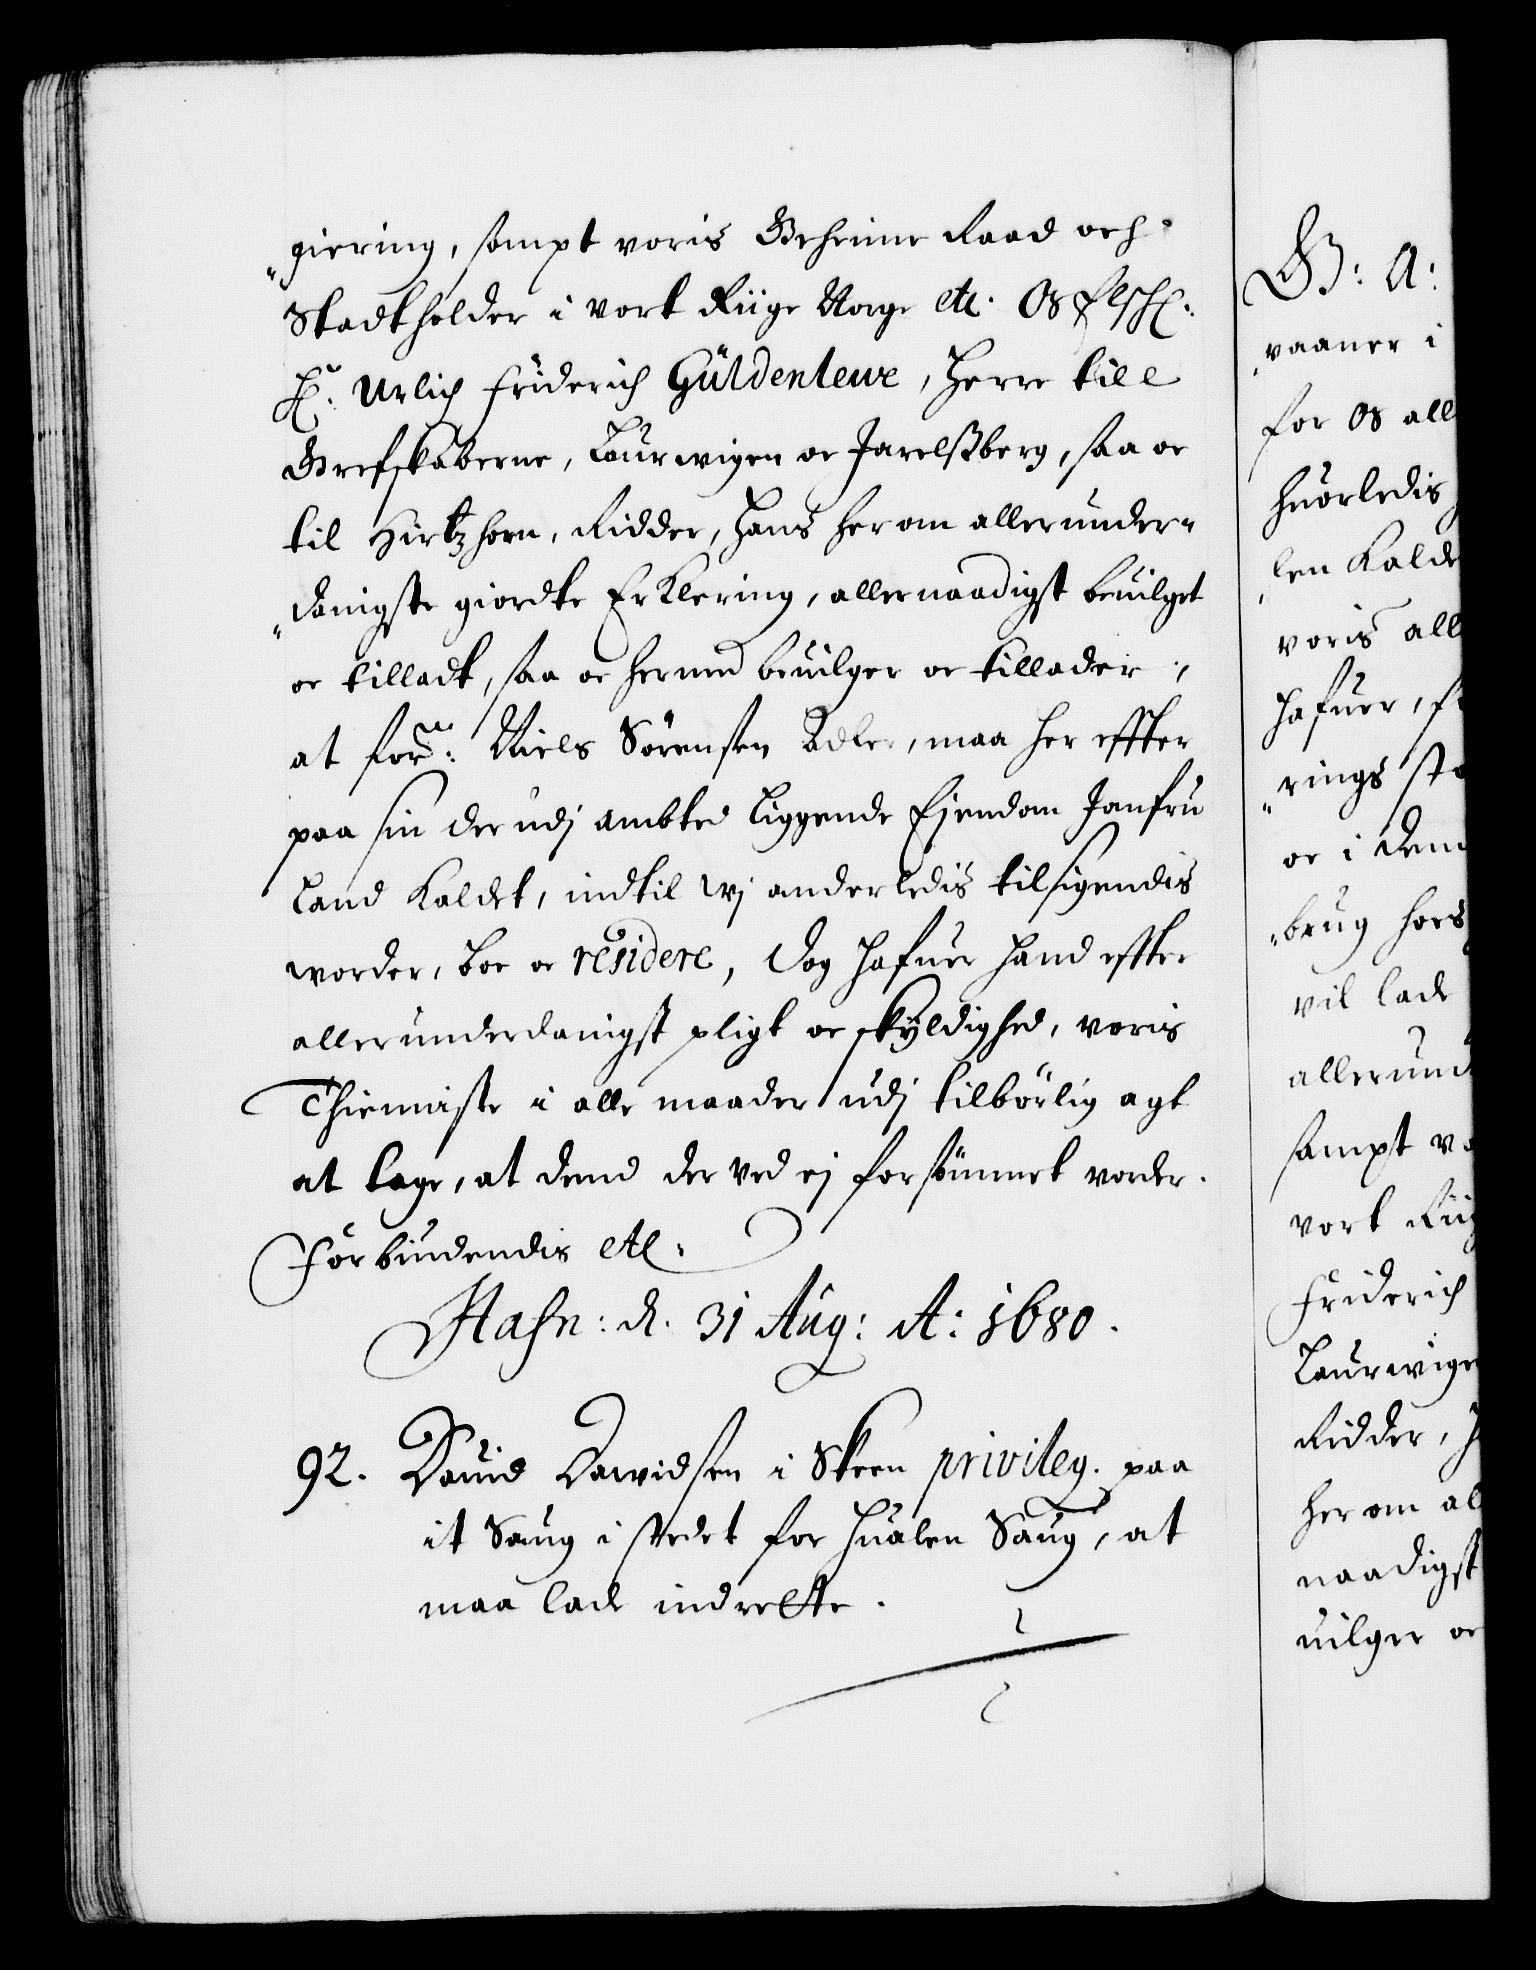 „giering, sampt voris Geheime Raad och
Stadtholder i vort Riige Norge etc. Os Elschl:
Hr. Urlich Friderich Güldenleuwe, Herre till
Grefskaberne, Laurwigen oc Jarelsberg, saa oc
til Hirtzhorn, Ridder, Hans her om allerunder„
„danigste giordte Erklering, allernaadigst beuilget
oc tilladt, saa oc hermed beuilger oc tillader,
at forne: Niels Sörensen Adler, maa her effter
paa sin der udj ambted liggende Ejendom Jomfru
Land kaldet, indtil wj anderledis tilsigendis
worder, boe oc residere, dog hafuer hand effter
allerunderdanigst pligt oc skyldighed, voris
Thienniste i alle maader udj tilbörlig agt
at tage, at dend der ved ej forsömmet vorder.
Forbiudendis etc.
Hafn: d. 31 Aug: A: 1680.
92. Dauid Dawidsen i Skeen privileg. paa
it Saug i stedet for Hualen Saug, at
maa lade indrette.
G: A:
vaaner i
for Os all
huorledis
len kalde
voris all
hafuer, f
„rings st
oc i dem
„brug hors
vil lade
allerund
sampt vo
vort Riig
Friderich
Laurwige
Ridder, H
her om al
naadigst
uilger oc